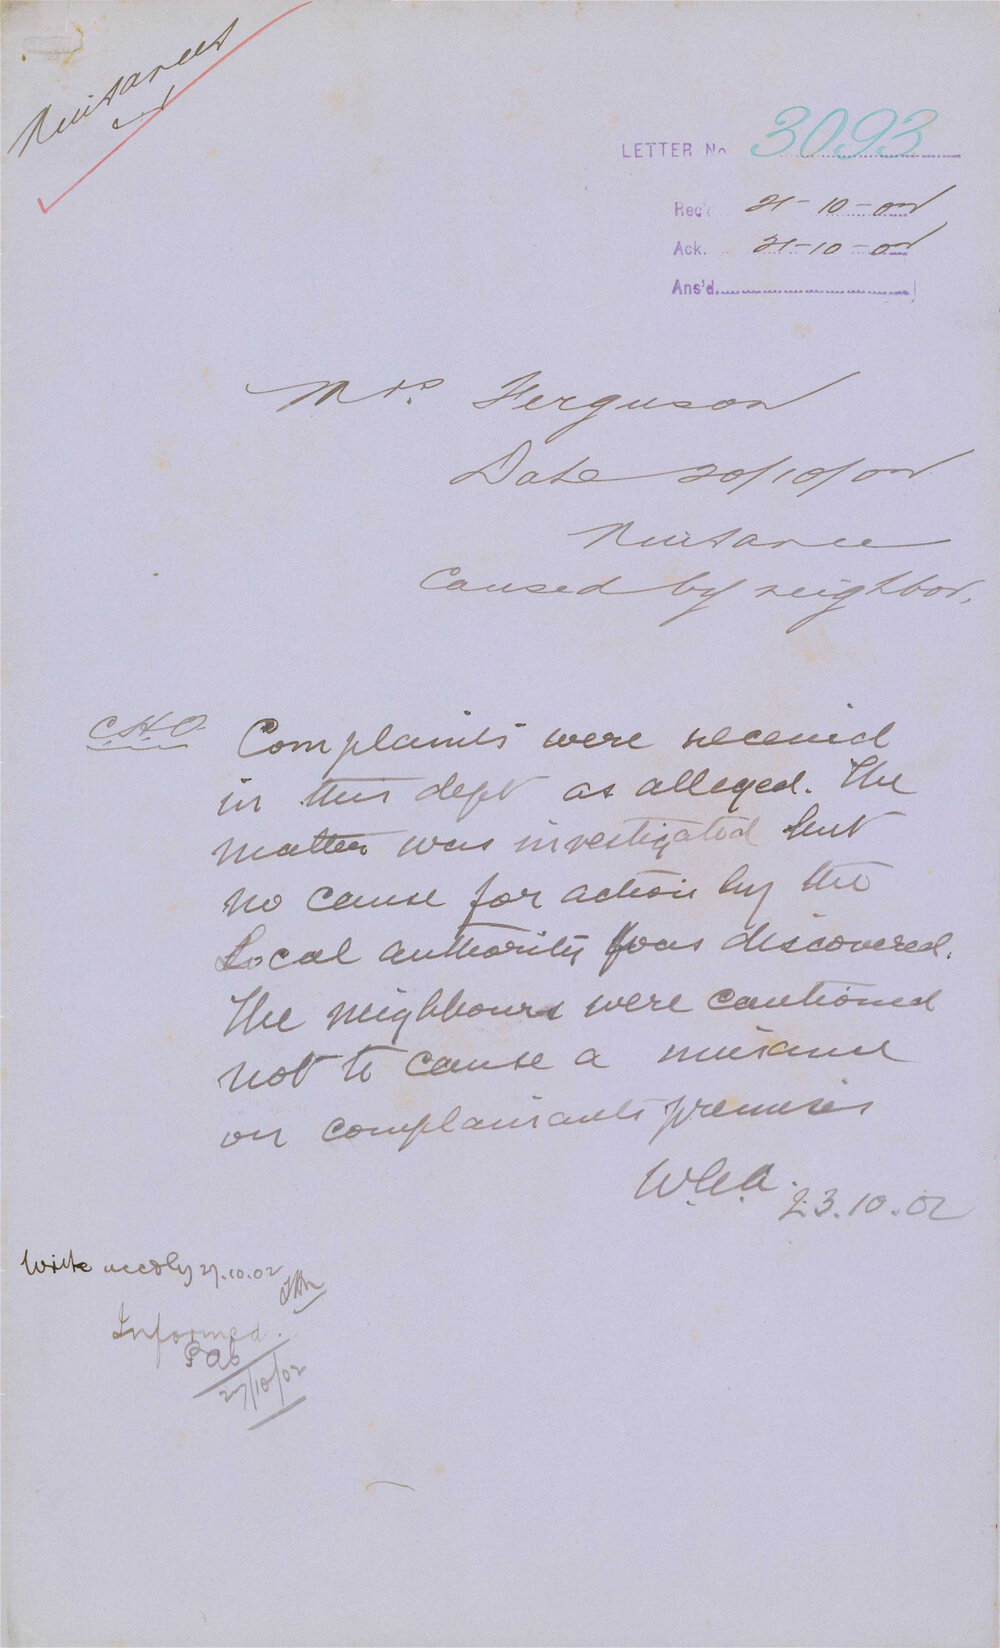 Nuisances
LETTER No 3093
Rec'd 21-10-02
Ack. 21-10-02
Ans'd.
Mrs. Ferguson
Date 20/10/02
Nuisance
Caused by neighbor,
C.H.O. Complaints were received
in this dept as alleged. The
matter was investigated but
no cause for action by the
Local authority was discovered.
The neighbours were cautioned
not to cause a nuisance
on complainants premises
23.10.02
Write accdly 27.10.02
Informed.
27/10/02